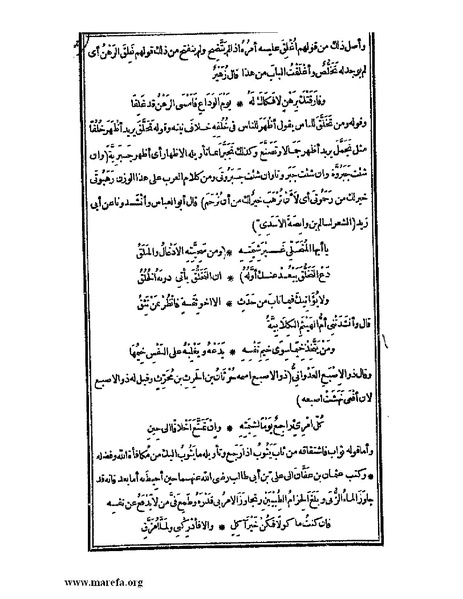 وأصل ذلك من قولهم أغْلِقَ عليه أمرُهُ اذا لم يَتَّضِحْ ولم ينفتح من ذلك قولهم غَلِقَ الرَّهْنُ أى
لم يوجد له تَخَلُّصٌ وأغْلَقْتُ البابَ من هذا قال زُهَيْرٌ
وفارقَتْكَ بِرَهْنٍ لافَكَاكَ لَهُ * يَوْمَ الوَدَاعِ فَأَمْسَى الرَّهْنُ قد غَلِقَا
وقوله ومن تَخَلَّقَ للناس يقول أظْهَرَ للناس فى خُلُقِهِ خلافَ نيته وقوله تَخَلَّقَ يريد أظهرَ خُلُقًا
مثل تَجَمَّلَ يريد أظهر جَمَالا وتَصَنَّعَ وكذلك تَجَبَّرَ انما تأويله الاظهار أى أظهر جَبَرِيَّةً (وان
شئت جَبَرُوَّةً وان شئت جَبَرُوتًا وان شئت جَبَرُوتَى ومن كلام العرب على هذا الوزن رَهَبُوتَى
خيرلك من رَحَمُوتَى أى لَأنْ تُرْهَبَ خيرُلك من أن تُرْحَمَ) قال أبو العباس وأنشدونا عن أبى
زيد (الشعر لسالم بن وابصة الأسدى)
ياأيها المُتَحَلِّى غَيْرَ شِيمَتِهِ * (ومن سَجِيَّتِهِ الادْغَالُ والمَلَقُ
دَعِ التَخَلُّقَ يَبْعُدْ عنك أوَّلُهُ) * ان التَخَلُّقَ يأتى دونه الخُلُقُ
ولا يُؤَاتِيكَ فيما ناب من حَدَثٍ * الا اخو ثِقَةٍ فانْظُرْ بمن تَثِقُ
قال وأنشَدَتْنِى أمُّ الهَيْثَمِ الكِلَابِيَّةُ
ومَنْ يَتَّخِذْ خِيمًا سِوَى خِيمِ نَفْسِهِ * يَدَعْهُ ويَغْلِبْهُ على النَّفْسِ خِيمُهَا
وقال ذو الاصبع العَدْوَانِىُّ (ذو الاصبع اسمه حُرْثَانُ بن الحرث بن مُحَرِّثٍ وقيل له ذو الاصبع
لان أفعى نَهَشَتْ اصبعه)
كُلُّ امْرِئٍ رَاجِعٌ يَوْمًا لِشِيمَتِهِ * وإنْ تَمَتَّعَ أَخْلَاقًا الى حِينِ
وأما قوله ثواب فاشتقاقه من ثابَ يَثُوبُ اذا رجع وتأويله ما يَثُوبُ اليك من مُكَافَأةِ اللهِ وفضله
* وكتب عثمان بن عفَّانَ الى على بن أبى طالب رضى الله عنهما حين أحيط به أما بعد فانه قد
جاوز الماءُ الزُّبَى وبلغَ الحِزامُ الطُّبْيَيْنِ وتجاوز الامرُ بى قَدْرَهُ وطَمِعَ فِىَّ من لا يَدْفَعُ عن نفسه
فان كنتُ مأكولا فكُنْ خَيْرَ آكِلٍ * والا فأدْرِكْنِى ولَمَّا أُمَزَّقِ
www.marefa.org